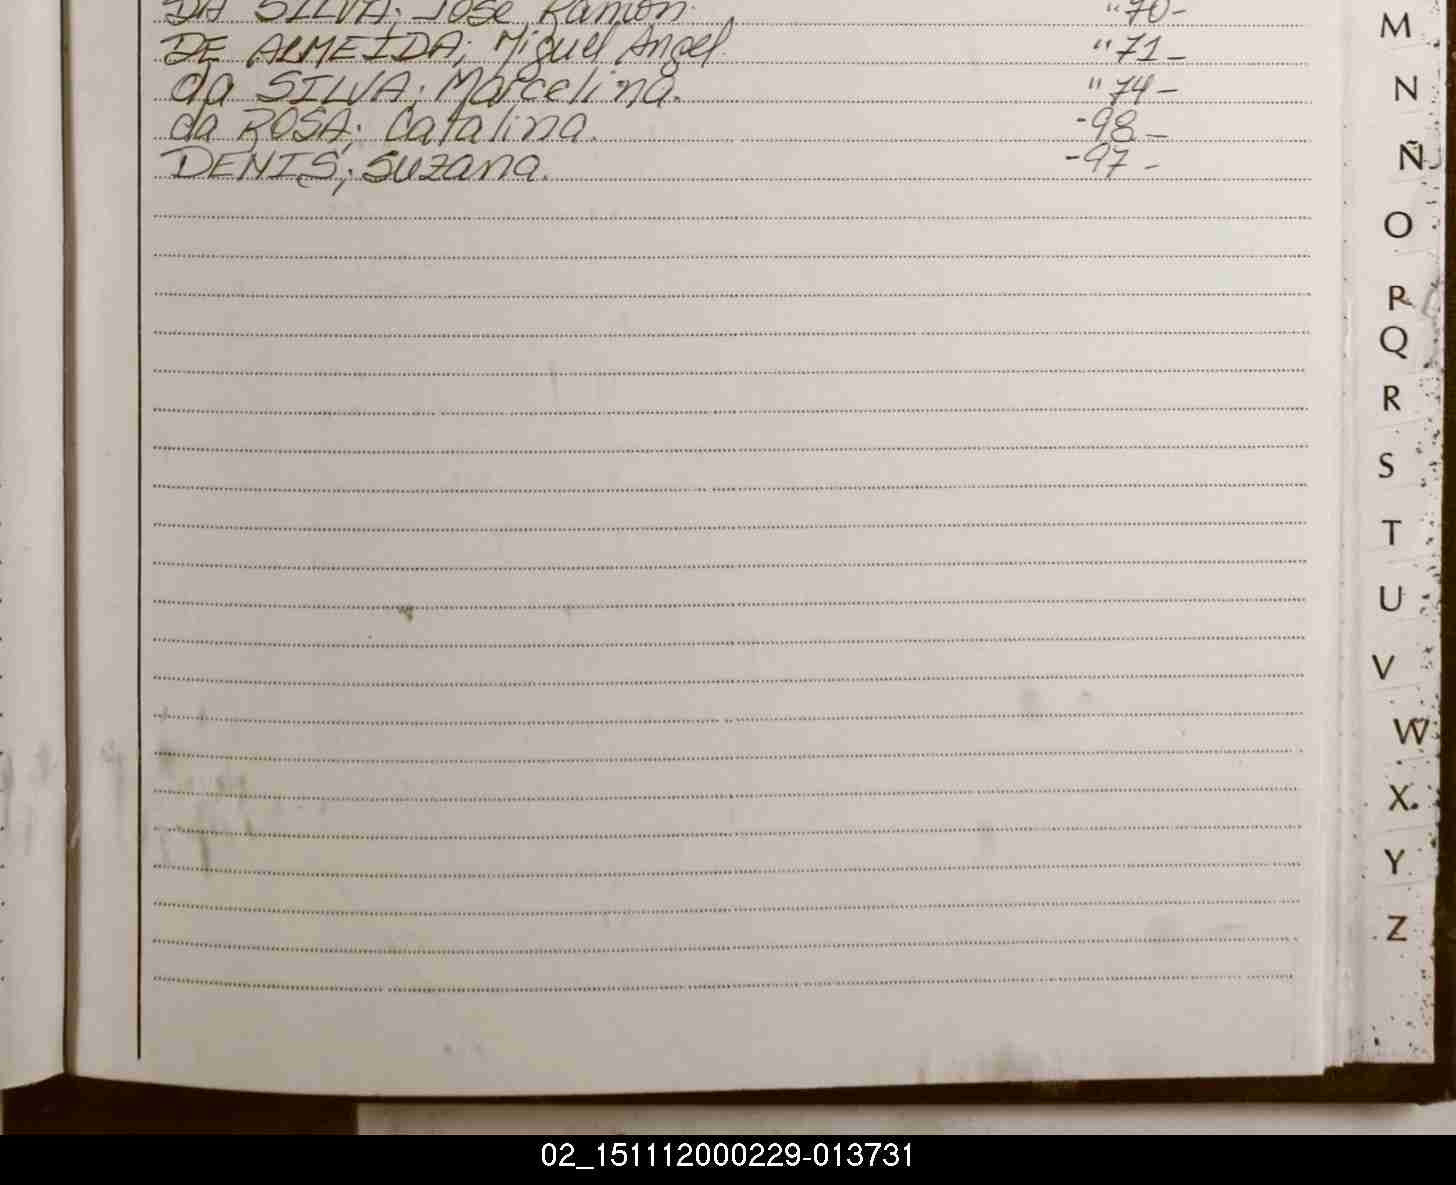 DA SILVA; José Ramón. "70-
DE ALMEIDA; Miguel Angel. "71-
da SILVA; Marcelina. "74-
da ROSA; Catalina. -98-
DENIS; Suzana. -97-
M
N
Ñ
O
P
Q
R
S
T
U
V
W
X
Y
Z
02_151112000229-013731